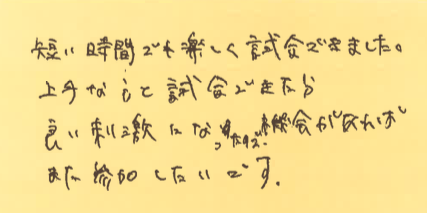 短い時間でも楽しく試合できました。
上手な人と試合できたから
良い刺激になったので、機会があれば
また参加したいです。